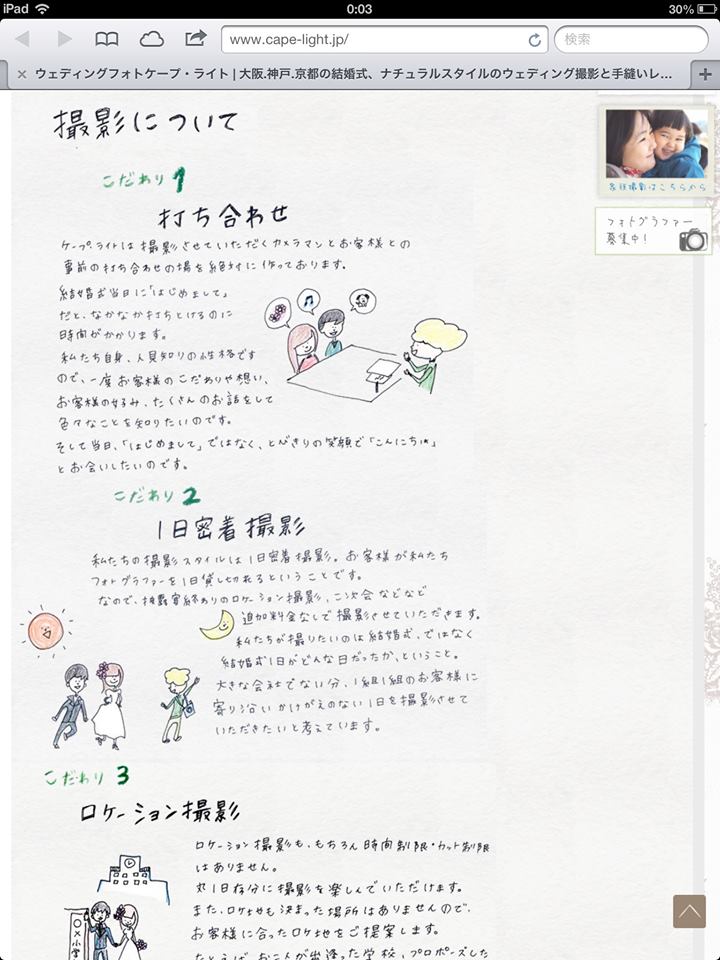 iPad
0:03
30%
www.cape-light.jp/
検索
ウェディングフォトケープ・ライト | 大阪.神戸.京都の結婚式、ナチュラルスタイルのウェディング撮影と手縫いレ...
撮影について
こだわり 1
打ち合わせ
ケープライトは撮影させていただくカメラマンとお客様との
事前の打ち合わせの場を絶対に作っております。
結婚式当日に「はじめまして」
だと、なかなか打ちとけるのに
時間がかかります。
私たち自身、人見知りの性格です
ので、一度お客様のこだわりや想い、
お客様の好み、たくさんのお話をして
色々なことを知りたいのです。
そして当日、「はじめまして」ではなく、とびきりの笑顔で「こんにちは」
とお会いしたいのです。
こだわり 2
1日密着撮影
私たちの撮影スタイルは1日密着撮影。お客様が私たち
フォトグラファーを1日貸し切れるということです。
なので、披露宴終わりのロケーション撮影、二次会などなど
追加料金なしで撮影させていただきます。
私たちが撮りたいのは結婚式、ではなく
結婚式1日がどんな日だったか、ということ。
大きな会社でない分、1組1組のお客様に
寄り沿いかけがえのない1日を撮影させて
いただきたいと考えています。
こだわり 3
ロケーション撮影
ロケーション撮影も、もちろん時間制限・カット制限
はありません。
丸1日存分に撮影を楽しんでいただけます。
また、ロケ地も決まった場所はありませんので、
お客様に合ったロケ地をご提案します。
たとえば、お二人が出逢った学校、プロポーズした
○×小学
各種撮影はこちらから
フォトグラファー
募集中!